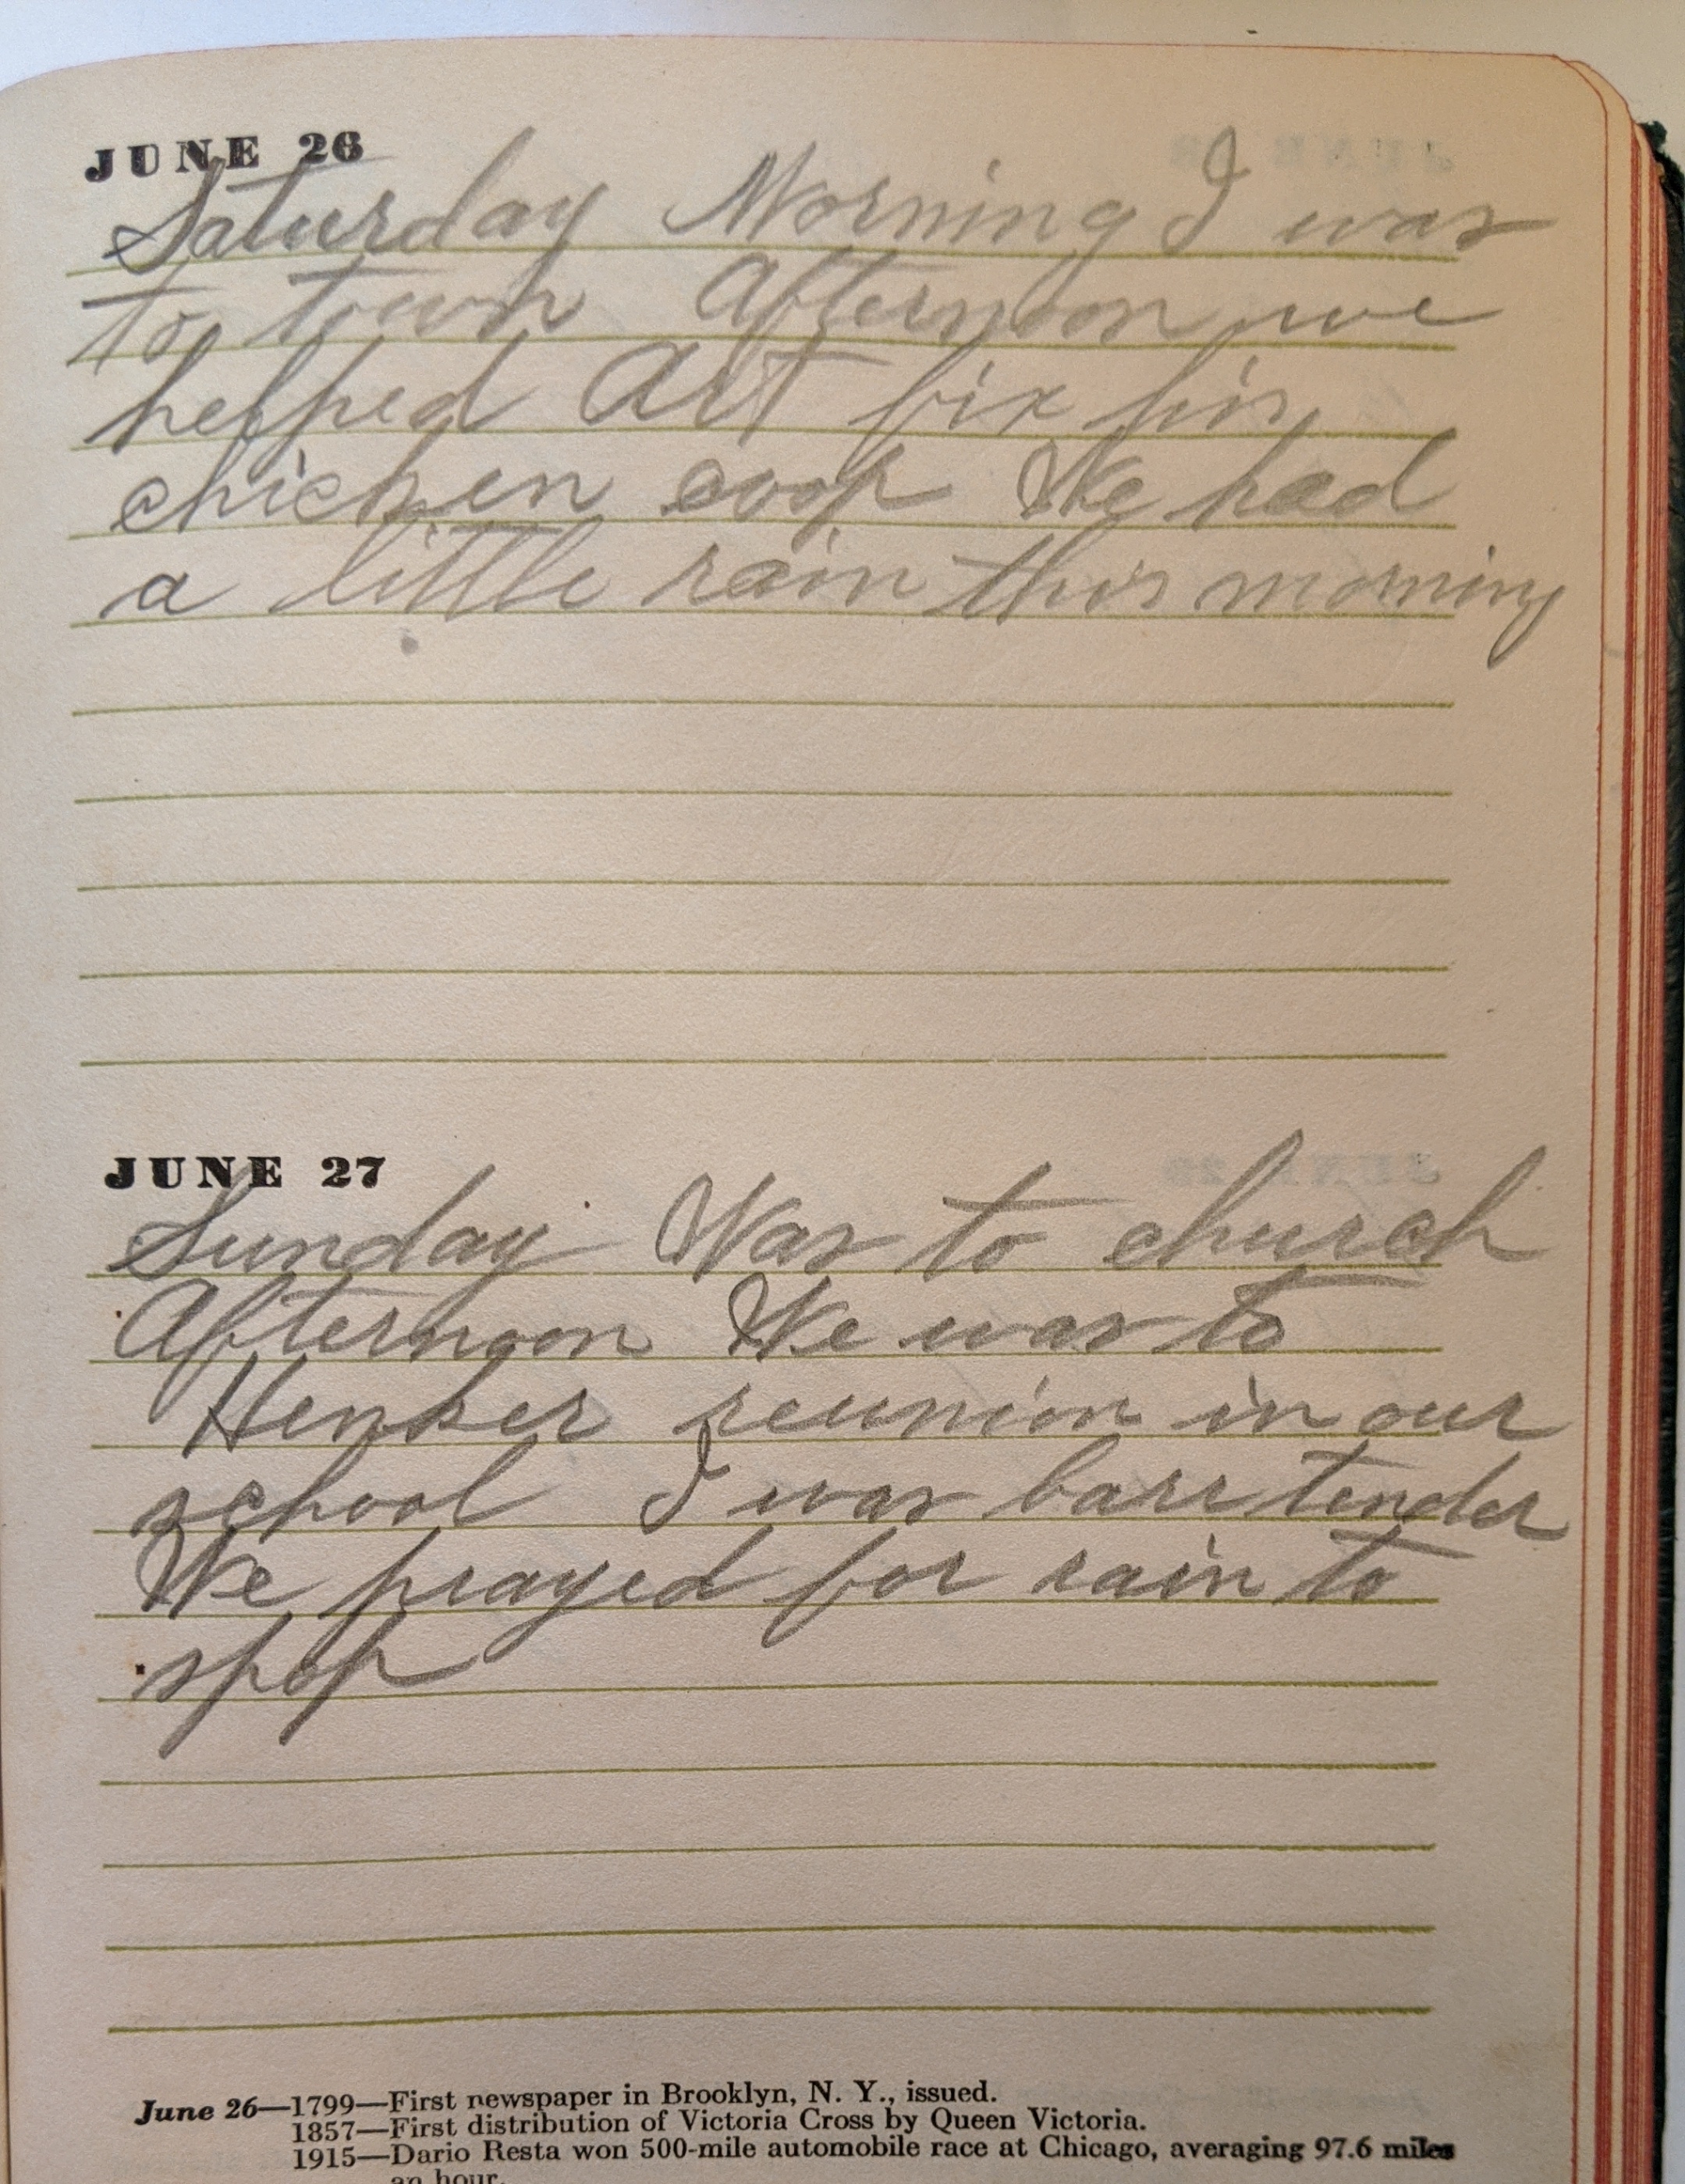 JUNE 26
Saturday Morning I was
to town Afternoon we
helped Art fix his
chicken coop We had
a little rain this morning
JUNE 27
Sunday Was to church
Afternoon We was to
Henker reunion in our
school I was barr tender
We prayed for rain to
spop
June 26—1799—First newspaper in Brooklyn, N. Y., issued.
1857—First distribution of Victoria Cross by Queen Victoria.
1915—Dario Resta won 500-mile automobile race at Chicago, averaging 97.6 miles
an hour.